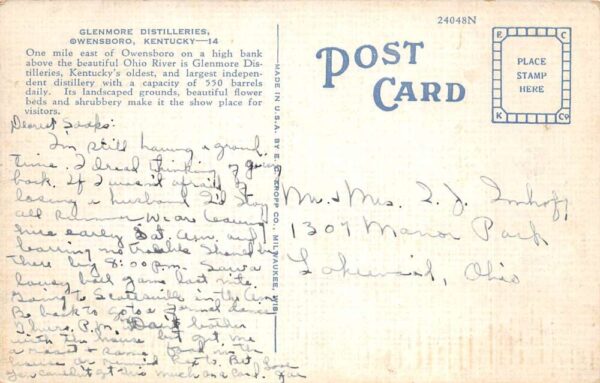 GLENMORE DISTILLERIES,
OWENSBORO, KENTUCKY—14
One mile east of Owensboro on a high bank
above the beautiful Ohio River is Glenmore Dis-
tilleries, Kentucky's oldest, and largest indepen-
dent distillery with a capacity of 550 barrels
daily. Its landscaped grounds, beautiful flower
beds and shrubbery make it the show place for
visitors.
24048N
POST
CARD
E C
PLACE
STAMP
HERE
K Co
MADE IN U.S.A. BY E. C. KROPP CO., MILWAUKEE, WIS.
Dearest
I'm still having a grand
time. I dread thinking of going
back. If I wasn't afraid of
losing a husband I'd stay
all summer. We are leaving
here early Sat. a.m. and
barring no trouble should be
there by 8:00 P.M. Saw a
lousy ball game last nite.
Going to in the a.m.
Be back to go to a formal dance
Thurs. P.M. Don't bother
with the house but get me
a roast & some
Love
You can't get too much on a card.
Mr. & Mrs. L. J. Imhoff,
1307 Manor Park
Lakewood, Ohio